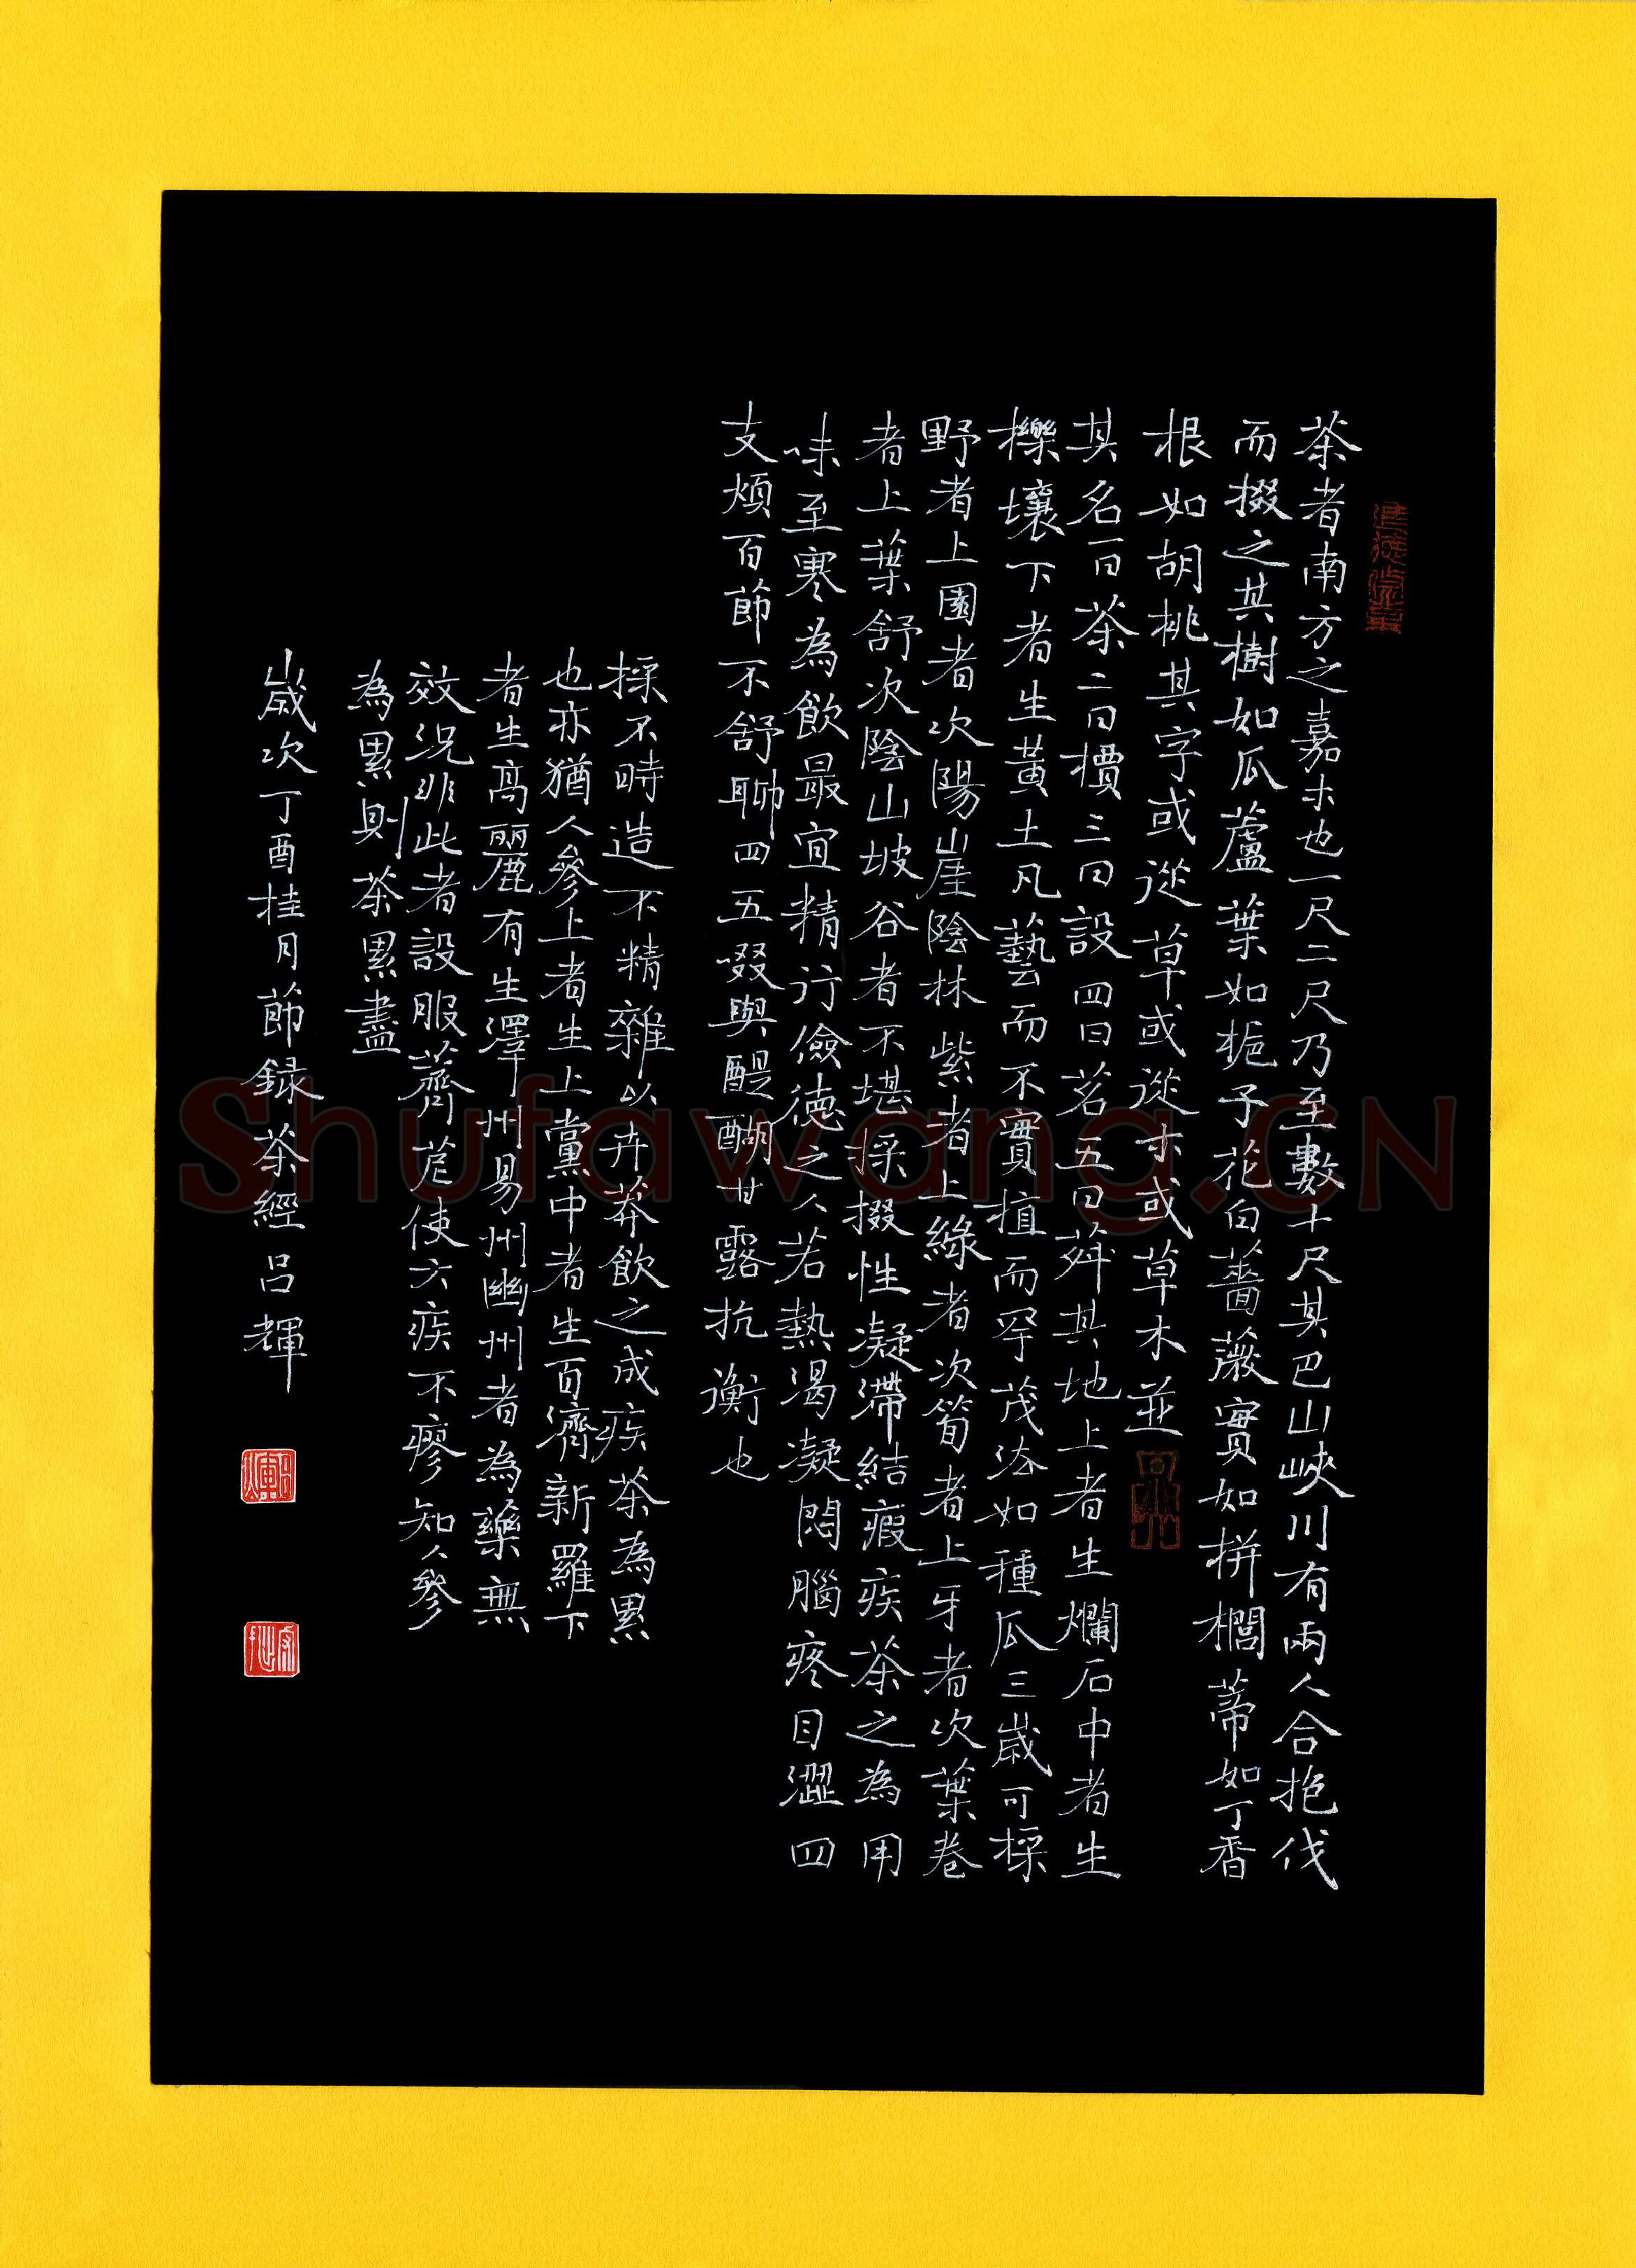 茶者南方之嘉木也一尺二尺乃至數十尺其巴山峽川有兩人合抱伐
而掇之其樹如瓜蘆葉如梔子花白薔薇實如栟櫚蒂如丁香
根如胡桃其字或從草或從木或草木並
其名一曰茶二曰檟三曰設四曰茗五曰荈其地上者生爛石中者生
櫟壤下者生黃土凡藝而不實植而罕茂法如種瓜三歲可採
野者上園者次陽崖陰林紫者上綠者次筍者上牙者次葉卷
者上葉舒次陰山坡谷者不堪採掇性凝滯結瘕疾茶之為用
味至寒為飲最宜精行儉德之人若熱渴凝悶腦疼目澀四
支煩百節不舒聊四五啜與醍醐甘露抗衡也
採不時造不精雜以卉莽飲之成疾茶為累
也亦猶人參上者生上黨中者生百濟新羅下
者生高麗有生澤州易州幽州者為藥無
效況非此者設服薺苨使六疾不瘳知人參
為累則茶累盡
歲次丁酉桂月節録茶經呂輝
Shufawang.CN